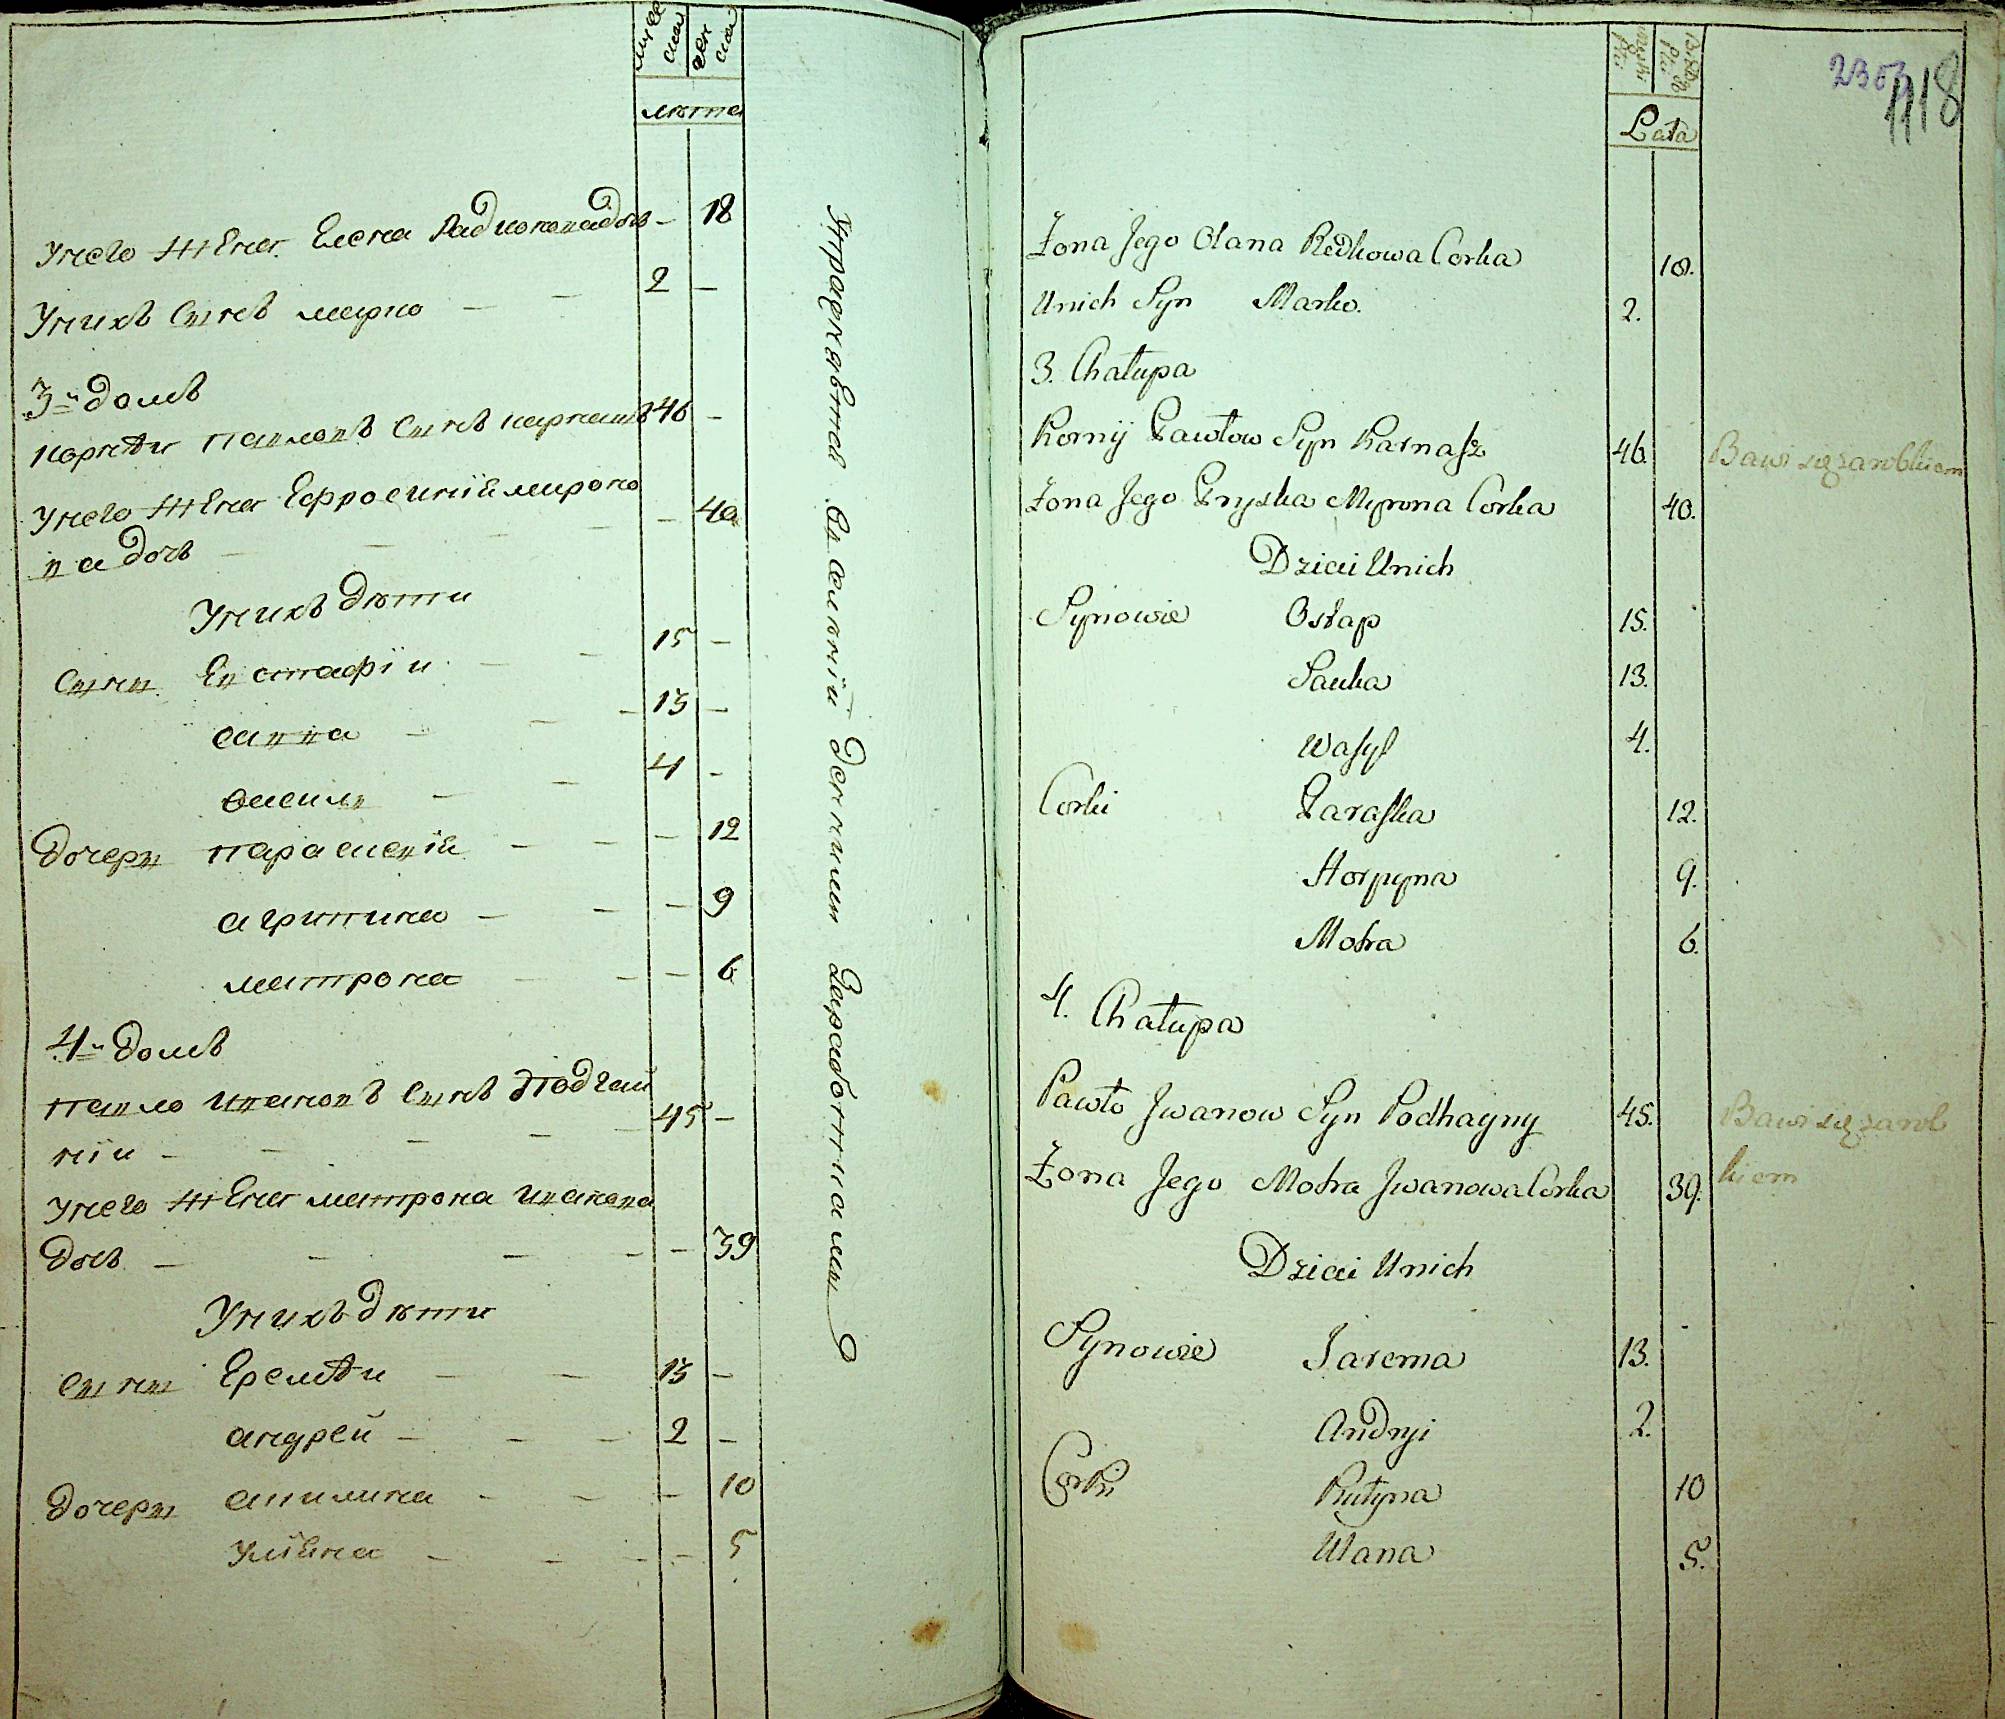 мужеска
женска
лѣта
У него жена Елена Радионова дочь — 18
У нихъ сынъ марко — — 2 —
3-й домъ
корнѣи павловъ сынъ карнашъ 46 —
У него жена Ефросинія мироно
ва дочь — — — — — 40
У нихъ дѣти
Сыны Евстафіи — — 15 —
савва — — — 13 —
василь — — 4 —
дочеры параскевія — — — — 12
агрипина — — — 9
матрона — — — 6
4-й домъ
павло ивановъ сынъ Подгай
ніи — — — — — 45 —
У него жена матрона иванова
дочь — — — — — 39
У нихъ дѣти
сыны Еремѣи — — 13 —
андрей — — — 2 —
дочеры акилина — — — 10
Уліяна — — — — 5
Упражняются въ селеніи
Lata
2353
118
Żona Jego Olana Redkowa Corka 18.
Unich Syn Marko. 2.
3. Chałupa
Kornij Pawłow Syn Karnasz 46. Bawi się zarobkiem
Żona Jego Pryska Myrona Corka 40.
Dzieci Unich
Synowie Ostap 15.
Sawka 13.
Wasyl 4.
Corki Paraska 12.
Horpyna 9.
Motra 6.
4. Chałupa
Pawło Jwanow Syn Podhayny 45. Bawi się zarob
kiem
Żona Jego Motra Jwanowa Corka 39.
Dzieci Unich
Synowie Jarema 13.
Andryi 2.
Corki Kułyna 10
Ulana 5.